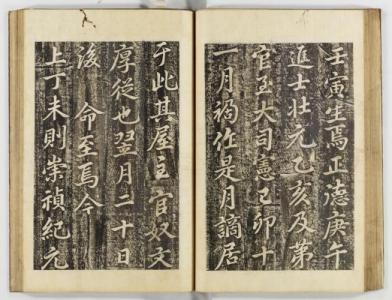 壬寅生焉正德庚午
進士壯元乙亥及第
官至大司憲己卯十
一月禍作是月謫居
于此其屋主官奴文
厚從也翌月二十日
後 命至焉今
上丁未則崇禎紀元